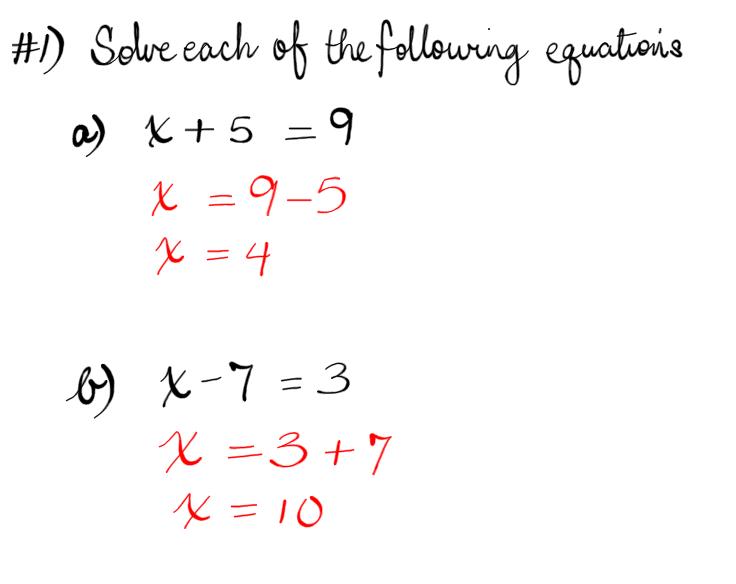 #1) Solve each of the following equations
a) x + 5 = 9
x = 9 - 5
x = 4
b) x - 7 = 3
x = 3 + 7
x = 10